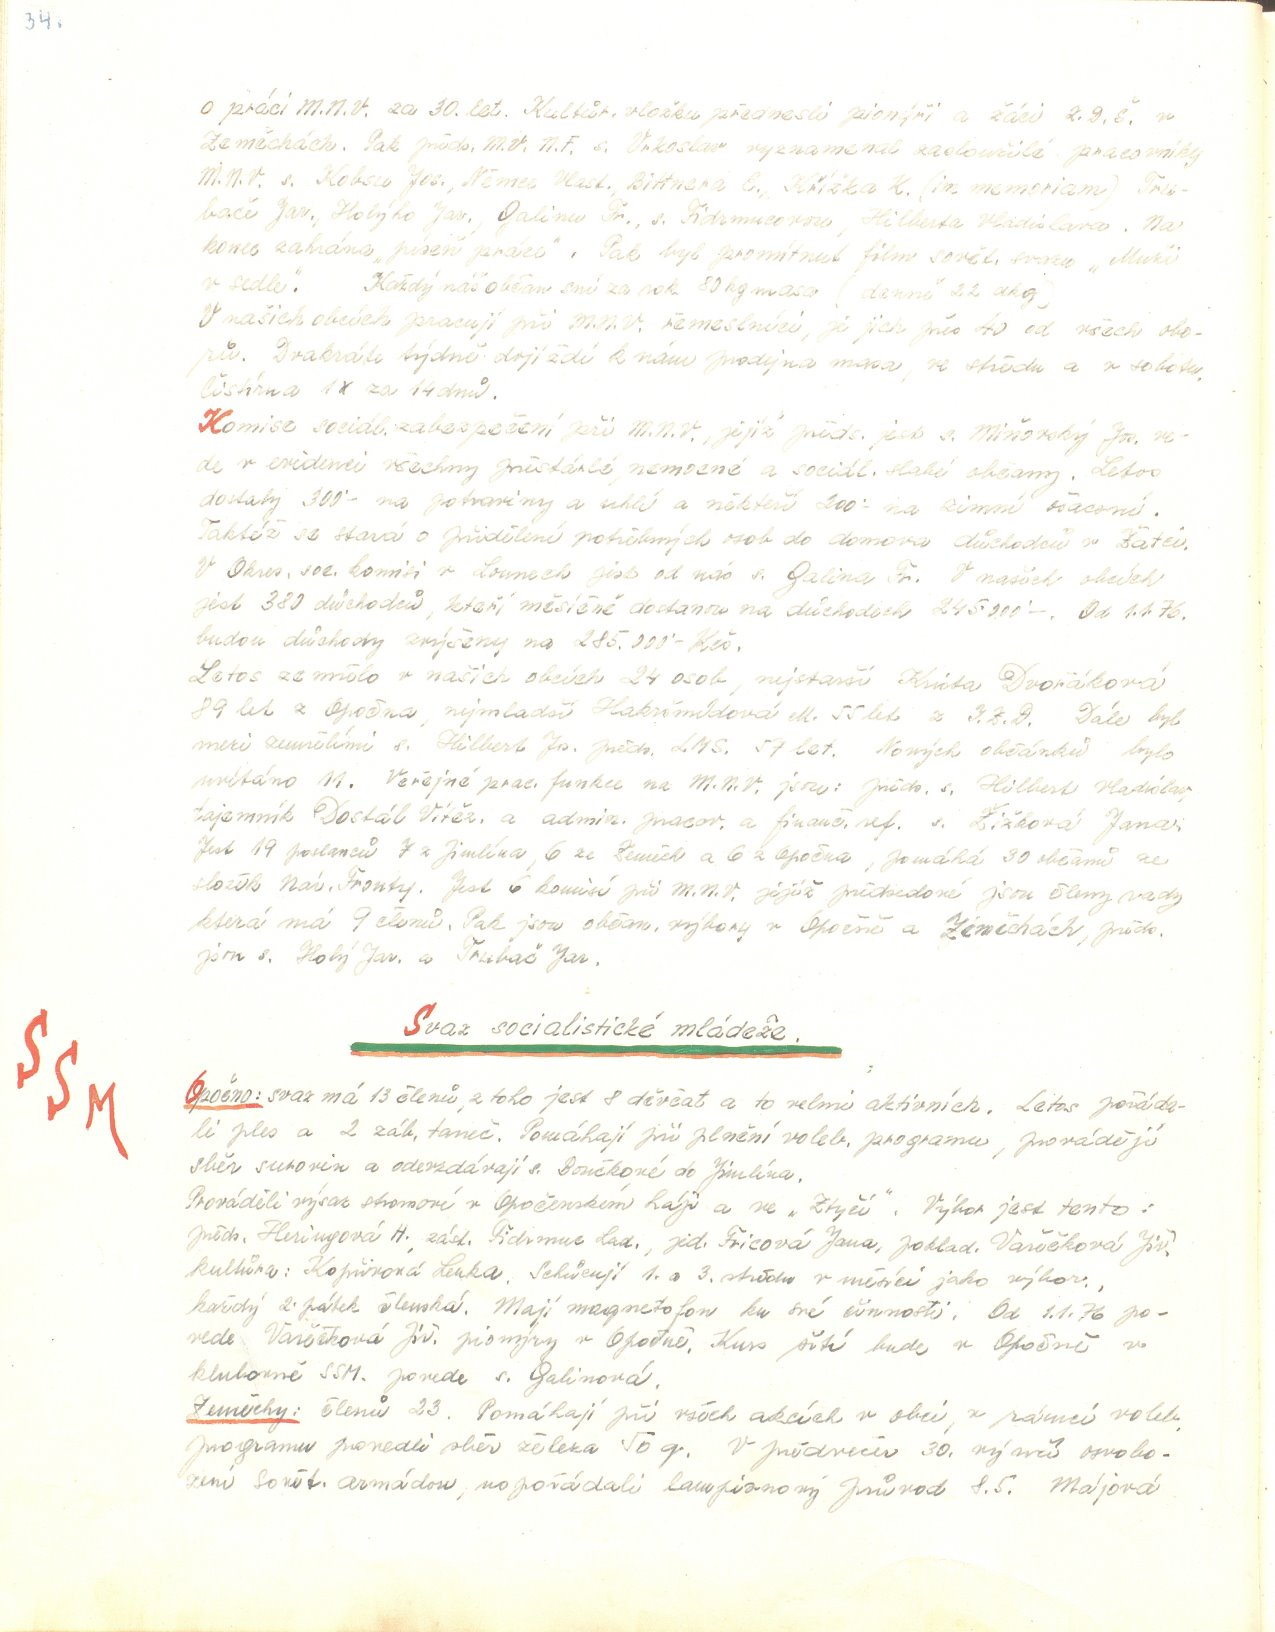 34.
o práci M.N.V. za 30. let. Kultur. vložku přednesli pionýři a žáci Z.D.Š. v
Zeměchách. Pak předs. M.V. N.F. s. Vrkoslav vyznamenal zasloužilé pracovníky
M.N.V. s. Kobsu Jos., Němec Vlast., Bittnera E., Křížka K. (in memoriam) Tru-
bače Jar., Holýho Jar., Galinu Fr., s. Fidrmucovou, Hilberta Vladislava. Na
konec zahrána „píseň práce“. Pak byl promítnut film sovět. svazu „Muži
v sedle“. Každý náš občan sní za rok 80 kg masa (denně 22 dkg)
V našich obcích pracují při M.N.V. řemeslníci, je jich přes 40 od všech obo-
rů. Dvakráte týdně dojíždí k nám prodejna masa, ve středu a v sobotu.
Čistírna 1x za 14 dnů.
Komise sociál. zabezpečení při M.N.V., jejíž předs. jest s. Miňovský Jos. ve-
de v evidenci všechny přestárlé, nemocné a sociál. slabé občany. Letos
dostaly 300'- na potraviny a uhlí a někteří 200'- na zimní ošacení.
Taktéž se stará o přidělení potřebných osob do domova důchodců v Žatci.
V Okres. soc. komisi v Lounech jest od nás s. Galina Fr. V našich obcích
jest 380 důchodců, kteří měsíčně dostanou na důchodech 245 000'-. Od 1.1.76.
budou důchody zvýšeny na 285.000'- Kčs.
Letos zemřelo v našich obcích 24 osob, nejstarší Dvořáková
89 let z Opočna, nejmladší M. 55 let z Dále byl
mezi zemřelými s. Hilbert Jos. předs. 57 let. Nových občánků bylo
uvítáno 11. Veřejné prac. funkce na M.N.V. jsou: předs. s. Hilbert Vladislav,
tajemník Dostál Vítěz. a admin. pracov. a finanč. ref. s. Žižková Jana.
Jest 19 poslanců 7 z Jimlína, 6 ze Zeměch a 6 z Opočna, pomáhá 30 občanů ze
složek Nár. Fronty. Jest 6 komisí při M.N.V. jejíž předsedové jsou členy rady
která má 9 členů. Pak jsou občan. výbory v Opočně a Zeměchách, předs.
jsou s. Holý Jar. a Trubač Jar.
Svaz socialistické mládeže.
SSM
Opočno: svaz má 13 členů, z toho jest 8 děvčat a to velmi aktivních. Letos pořáda-
li ples a 2 záb. taneč. Pomáhají při plnění voleb. programu, provádějí
sběr surovin a odevzdávají s. Doučkové do Jimlína.
Prováděli výsaz stromoví v Opočenském háji a ve „Ztyčí“. Výbor jest tento:
předs. Heringová H., zást. Fidrmuc Lad., jed. Fricová Jana, poklad. Vaněčková Jiř.
kultura: Kopřivová Lenka. Schůzují 1. a 3. středu v měsíci jako výbor,
každý 2. pátek členská. Mají magnetofon ku své činnosti. Od 1.1.76 po-
vede Vaněčková Jiř. pionýry v Opočně. Kurs šití bude v Opočně v
klubovně SSM. povede s. Galinová.
Zeměchy: členů 23. Pomáhají při všech akcích v obci, v rámci voleb.
programu provedli sběr železa 50 q. V předvečer 30. výročí osvobo-
zení Sovět. armádou, uspořádali lampionový průvod 8.5. Májová